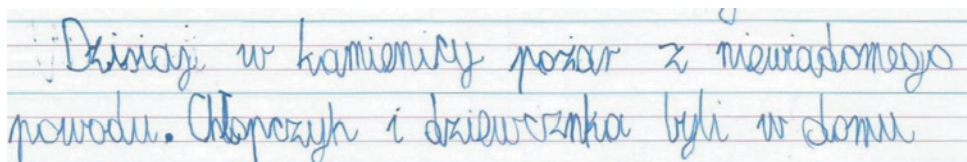 Dzisiaj w kamienicy pożar z niewiadomego
powodu. Chłopczyk i dziewcznka byli w domu